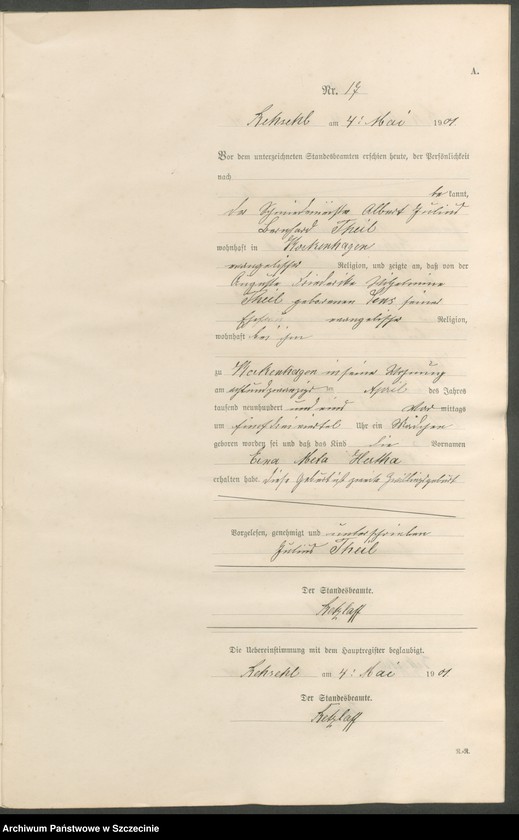 A.
Nr. 17
am 4: Mai 1901
Vor dem unterzeichneten Standesbeamten erschien heute, der Persönlichkeit
nach
be kannt,
der Schmiedemeister Albert Julius
Bernhard Theil
wohnhaft in Workenhagen
evangelischer Religion, und zeigte an, daß von der
Auguste Friederike Wilhelmine
Theil geborenen seiner
Ehefrau evangelischer Religion,
wohnhaft bei ihm
zu Workenhagen in seiner Wohnung
am achtundzwanzigsten April des Jahres
tausend neunhundert und eins Vor mittags
um fünf dreiviertel Uhr ein Mädchen
geboren worden sei und daß das Kind die Vornamen
Erna Meta Hertha
erhalten habe. Diese Geburt ist zweite Zwillingsgeburt
Vorgelesen, genehmigt und unterschrieben
Julius Theil
Der Standesbeamte.
Retzlaff
Die Uebereinstimmung mit dem Hauptregister beglaubigt.
am 4: Mai 1901
Der Standesbeamte.
Retzlaff
Archiwum Państwowe w Szczecinie